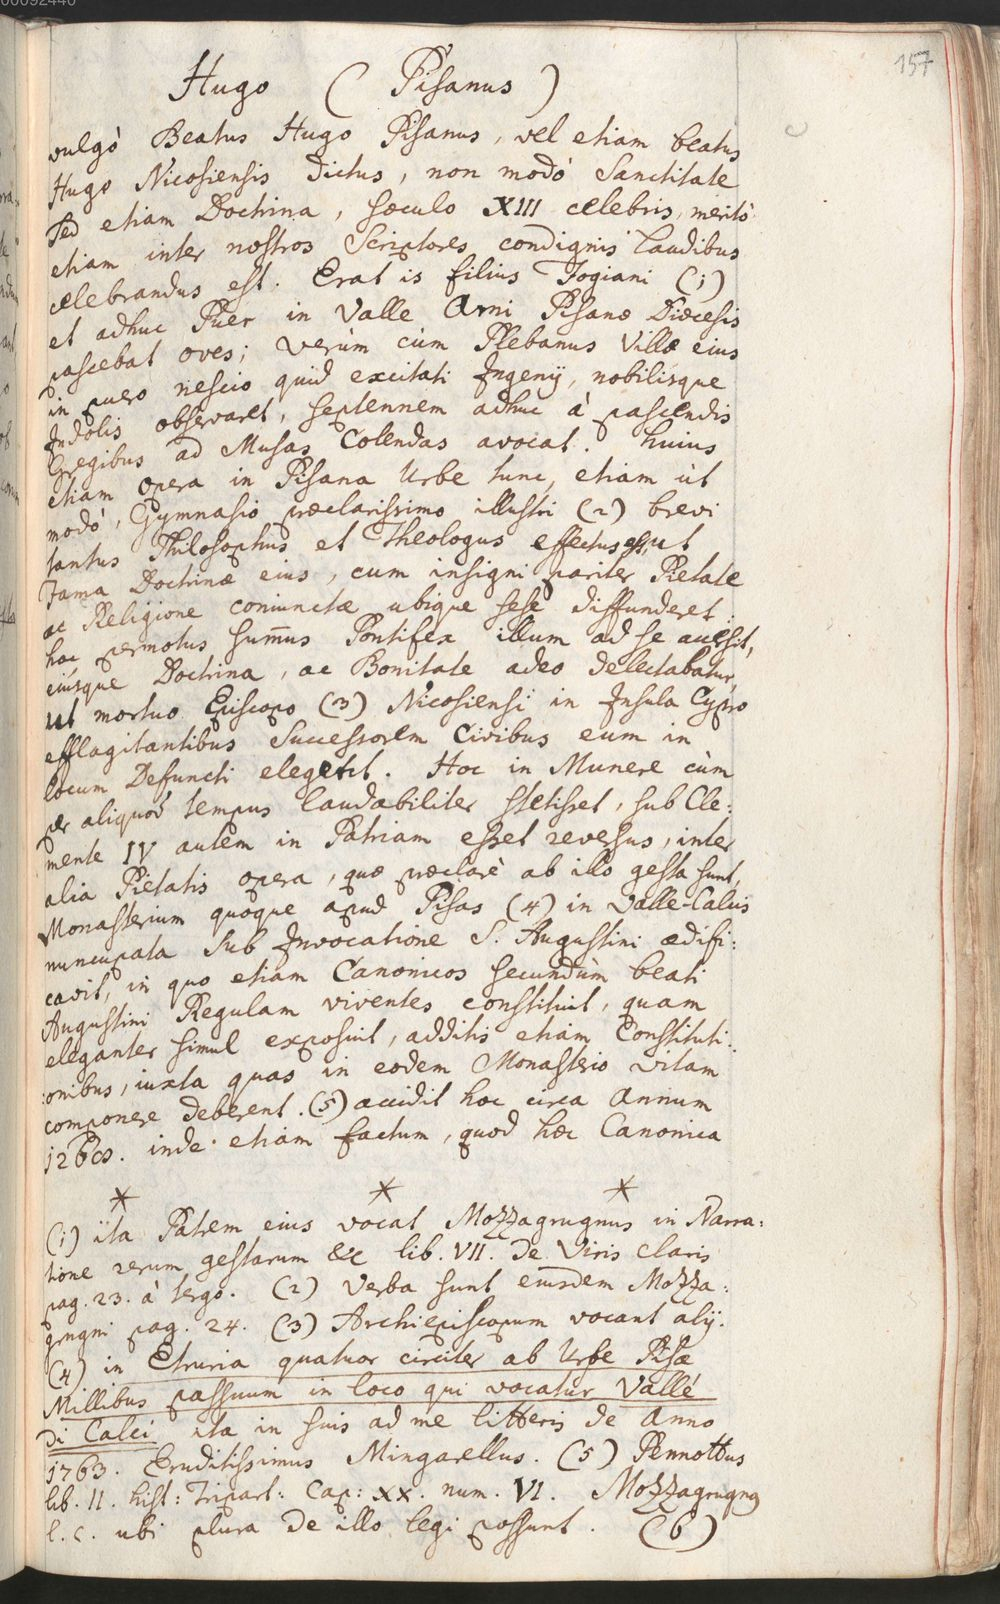 00092440
157
Hugo ( Pisanus )
vulgò Beatus Hugo Pisanus, vel etiam beatus
Hugo Nicosiensis dictus, non modò Sanctitate
sed etiam Doctrina, sæculo XIII celebris, meritò
etiam inter nostros Scriptores condignis laudibus
celebrandus est. Erat is filius Fogiani (1)
et adhuc Puer in Valle Arni Pisanæ Diœcesis
pascebat oves; verùm cùm Plebanus Villæ eius
in puero nescio quid excitati Ingenij, nobilisque
Indolis observaret, septennem adhuc à pascendis
Gregibus ad Musas Colendas avocat. huius
etiam opera in Pisana Urbe tunc, etiam ùt
modò, Gymnasio præclarissimo illustri (2) brevi
tantus Philosophus et Theologus effectus est, ut
Fama Doctrinæ eius, cum insigni pariter Pietate
ac Religione coniunctæ ubique sese diffunderet:
hac permotus Sum̄us Pontifex illum ad se accersit,
eiusque Doctrina, ac Bonitate adeo delectabatur,
ut mortuo Episcopo (3) Nicosiensi in Insula Cypro
efflagitantibus Successorem Civibus eum in
locum Defuncti elegerit. Hoc in Munere cùm
per aliquod tempus laudabiliter stetisset, sub Cle:
mente IV autem in Patriam esset reversus, inter
alia Pietatis opera, quæ præclarè ab illo gesta sunt,
Monasterium quoque apud Pisas (4) in Valle-Calcis
nuncupata sub Invocatione S. Augustini ædifi:
cavit, in quo etiam Canonicos secundùm beati
Augustini Regulam viventes constituit, quam
eleganter simul exposuit, additis etiam Constituti:
:onibus, iuxta quas in eodem Monasterio vitam
componere deberent. (5) accidit hoc circa Annum
inde etiam factum, quod hæc Canonica
* * *
(1) ita Patrem eius vocat Mozzagrugnus in Narra:
tione rerum gestarum &c lib. VII. de Viris claris
pag. 23. à tergo. (2) Verba sunt eiusdem Mozza:
grugni pag. 24. (3) Archiepiscopum vocant alij.
(4) in Etruria quatuor circiter ab Urbe Pisæ
Millibus passuum in loco qui vocatur Vallé
di Calci ita in suis ad me litteris de Anno
1763. Eruditissimus Mingarellus. (5) Pennottus
lib. II. hist: Tripart: Cap: XX. num. VI. Mozzagrugnq
l. c. ubi plura de illo legi possunt. (6)